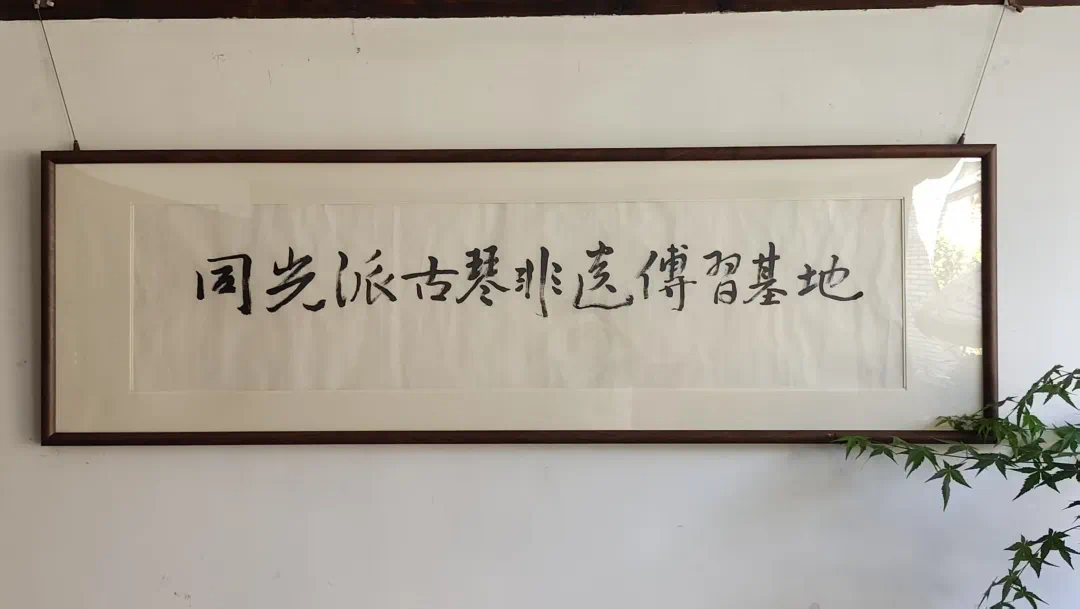 同光派古琴非遗傳習基地